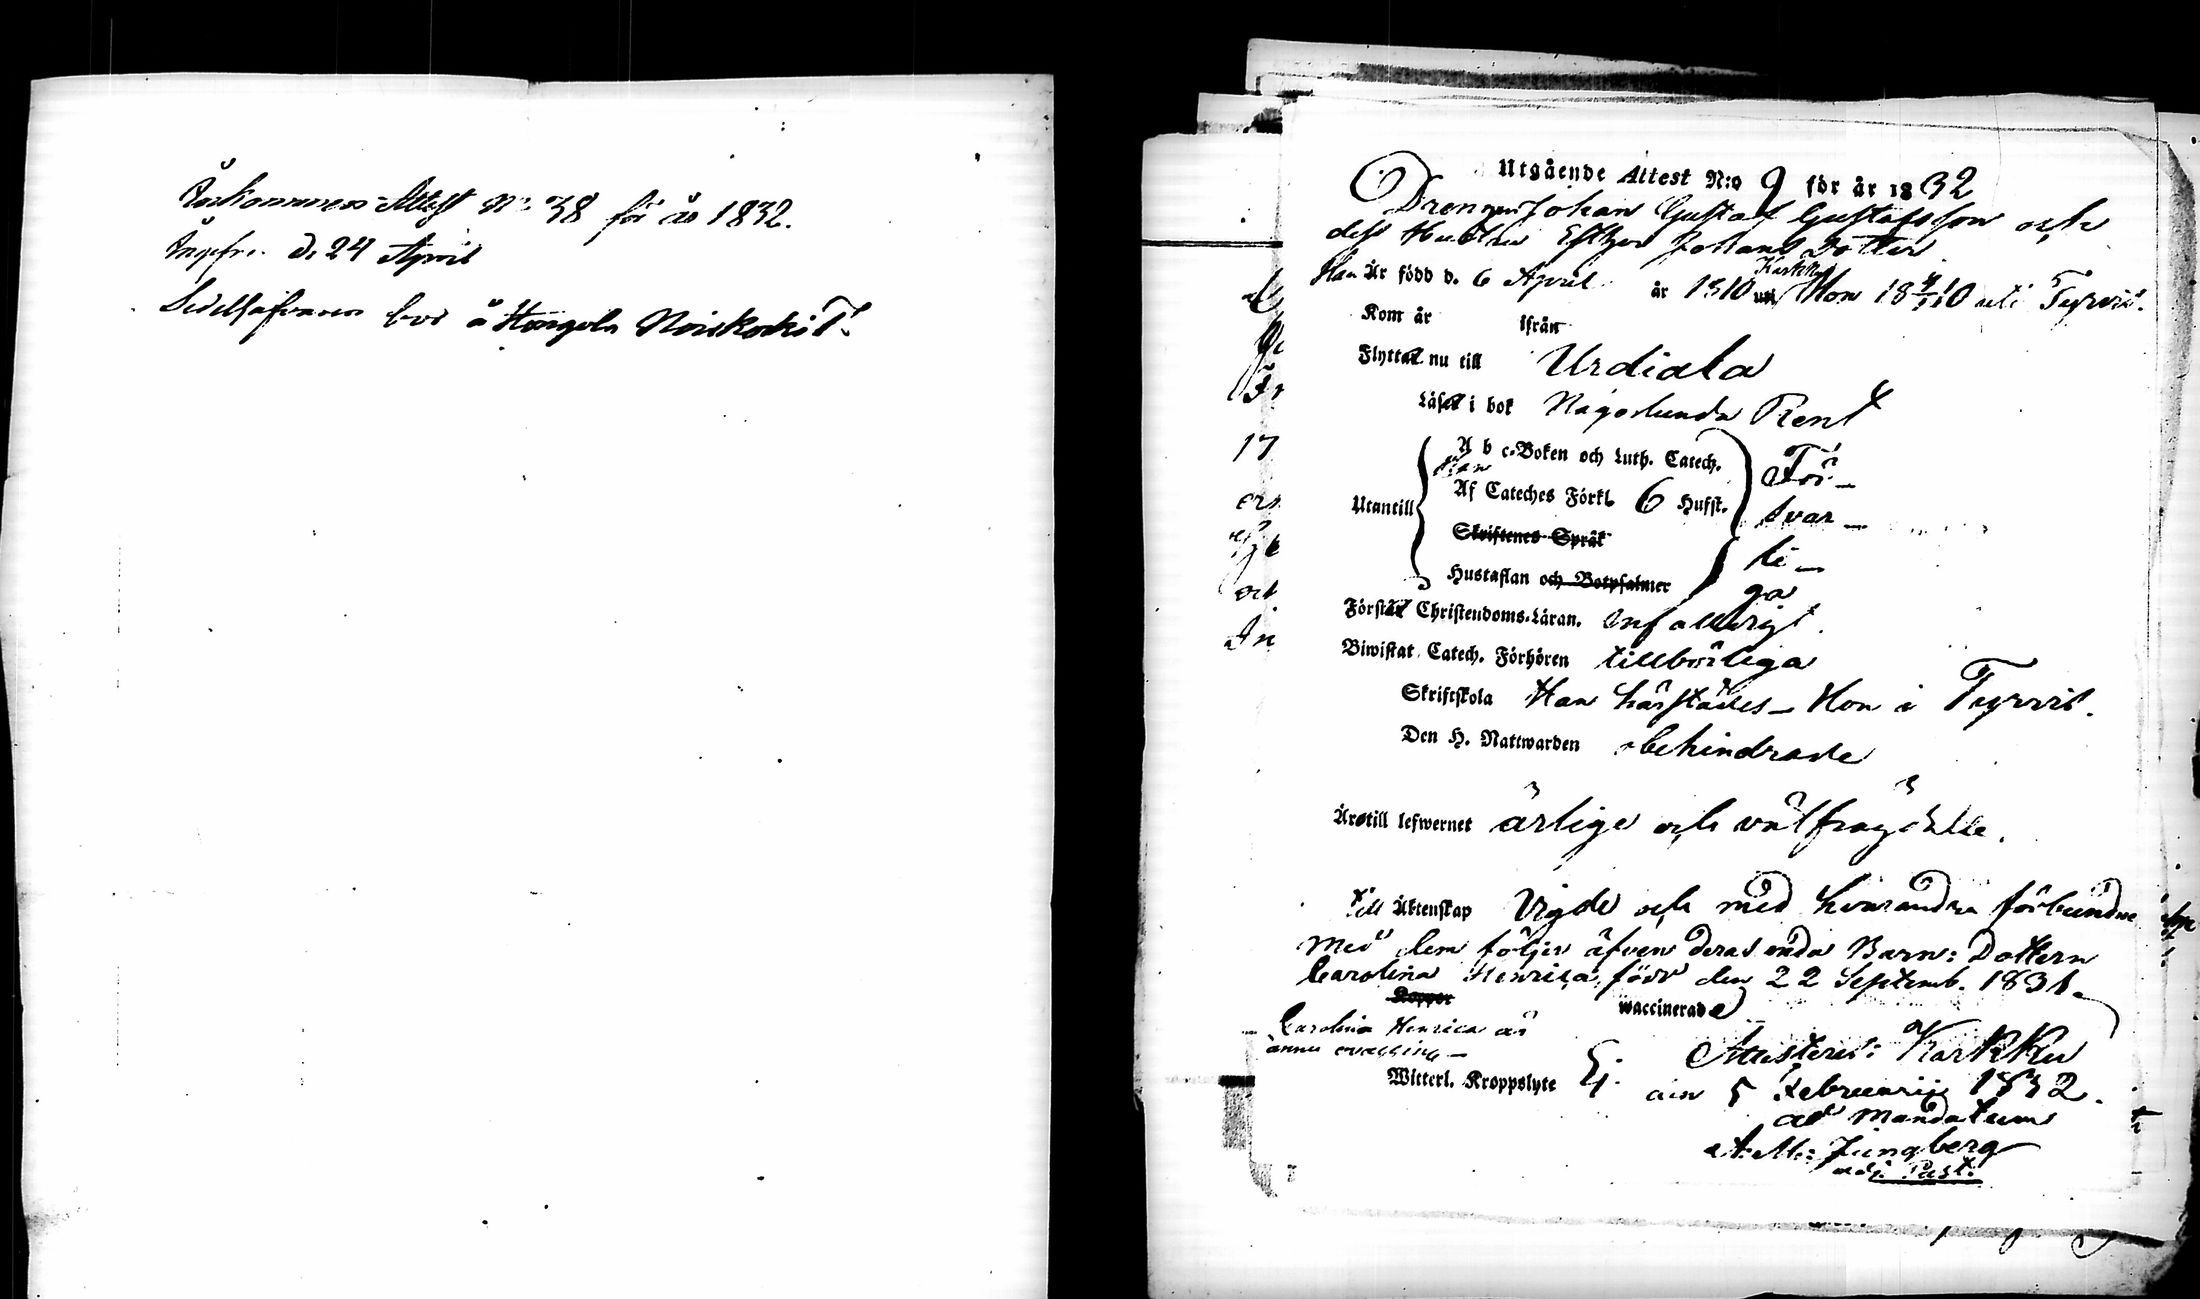 Ankommen Attest N:o 38 för år 1832.
d. 24 April
Sedelhafvaren bor å Hongola Noiskoski T.
Utgående Attest N:o 9 för år 1832
Drengen Johan Gustaf Gustafsson och
dess Hustru Esther Johans Dotter
Han Är född d. 6 April år 1810 uti Karkku Hon 18 4/11 10 uti Tyrvis.
Kom år ifrån
Flyttat nu till Urdiala
Läser i bok Någorlunda Rent
A b c-Boken och Luth. Catech. För-
Han
Utantill Af Cateches Förkl. 6 Hufst. svar-
Skriftenes Språk li-
Hustaflan och Botpsalmer ga
Förstår Christendoms-Läran. Enfalldigt.
Biwistat Catech. Förhören tillbörliga
Skriftskola Han härstädes - Hon i Tyrvis.
Den H. Nattwarden obehindrade
Äro till lefwernet ärlige och välfrägdade.
Till Äktenskap Vigde och med hvarandra förbundne
Med dem följer äfven deras enda Barn: Dottern
Carolina Henrica, född den 22 Septemb. 1831.
Koppor waccinerade
Carolina Henrica är
ännu
Witterl. Kroppslyte Ej.
Attesterar: Karkku
den 5 Februarii 1832.
ad Mandatum
A. M: Ljungberg
adj: Past: